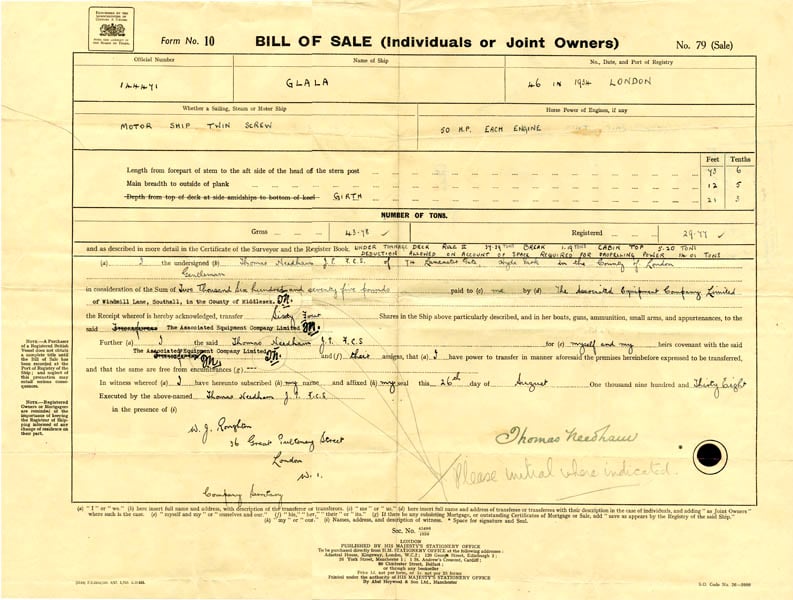 Form No. 10
BILL OF SALE (Individuals or Joint Owners)
No. 79 (Sale)
Official Number
Name of Ship
No., Date, and Port of Registry
144471
GLALA
46 IN 1934 LONDON
Whether a Sailing, Steam or Motor Ship
Horse Power of Engines, if any
MOTOR SHIP TWIN SCREW
50 H.P. EACH ENGINE
Feet Tenths
Length from forepart of stem to the aft side of the head of the stern post
6
Main breadth to outside of plank 12 5
Depth from top of deck at side amidships to bottom of keel GIRTH 21
NUMBER OF TONS.
Gross 43.78 Registered 29.77
and as described in more detail in the Certificate of the Surveyor and the Register Book. UNDER TONNAGE DECK RULE II BREAK CABIN TOP 5.20 TONS
DEDUCTION ALLOWED ON ACCOUNT OF SPACE REQUIRED FOR PROPELLING POWER 14.01 TONS
(a) I the undersigned (b) Thomas Needham J.P. F.C.S. of 74 Lancaster Gate, Hyde Park in the County of London
Gentleman
in consideration of the Sum of Two Thousand six hundred and seventy five pounds paid to (c) me by (d) The Associated Equipment Company Limited
of Windmill Lane, Southall, in the County of Middlesex.
the Receipt whereof is hereby acknowledged, transfer Sixty Four Shares in the Ship above particularly described, and in her boats, guns, ammunition, small arms, and appurtenances, to the
said Transferees The Associated Equipment Company Limited
Further (a) I the said Thomas Needham J.P. F.C.S for (e) myself and my heirs covenant with the said
The Associated Equipment Company Limited
and (f) their assigns, that (a) I have power to transfer in manner aforesaid the premises hereinbefore expressed to be transferred,
and that the same are free from encumbrances (g)
In witness whereof (a) I have hereunto subscribed (h) my name and affixed (h) my seal this 26th day of August One thousand nine hundred and Thirty Eight
Executed by the above-named Thomas Needham J.P. F.C.S
in the presence of (i)
W. J. Roughton
36 Great Pulteney Street
London
W. 1.
Company Secretary
Thomas Needham
Please initial where indicated.
NOTE.—A Purchaser of a Registered British Vessel does not obtain a complete title until the Bill of Sale has been recorded at the Port of Registry of the Ship; and neglect of this precaution may entail serious consequences.
NOTE.—Registered Owners or Mortgagees are reminded of the importance of keeping the Registrar of Shipping informed of any change of residence on their part.
(a) "I" or "we." (b) here insert full name and address, with description of the transferor or transferors. (c) "me" or "us." (d) here insert full name and address of transferee or transferees with their description in the case of individuals, and adding "as Joint Owners"
where such is the case. (e) "myself and my" or "ourselves and our." (f) "his," "her," "their" or "its." (g) If there be any subsisting Mortgage, or outstanding Certificates of Mortgage or Sale, add "save as appears by the Registry of the said Ship."
(h) "my" or "our." (i) Names, address, and description of witness. * Space for signature and Seal.
LONDON
PUBLISHED BY HIS MAJESTY'S STATIONERY OFFICE
To be purchased directly from H.M. STATIONERY OFFICE at the following addresses:
Adastral House, Kingsway, London, W.C.2; 120 George Street, Edinburgh 2;
26 York Street, Manchester 1; 1 St. Andrew's Crescent, Cardiff;
80 Chichester Street, Belfast;
or through any bookseller
Printed under the authority of HIS MAJESTY'S STATIONERY OFFICE
By Abel Heywood & Son Ltd., Manchester